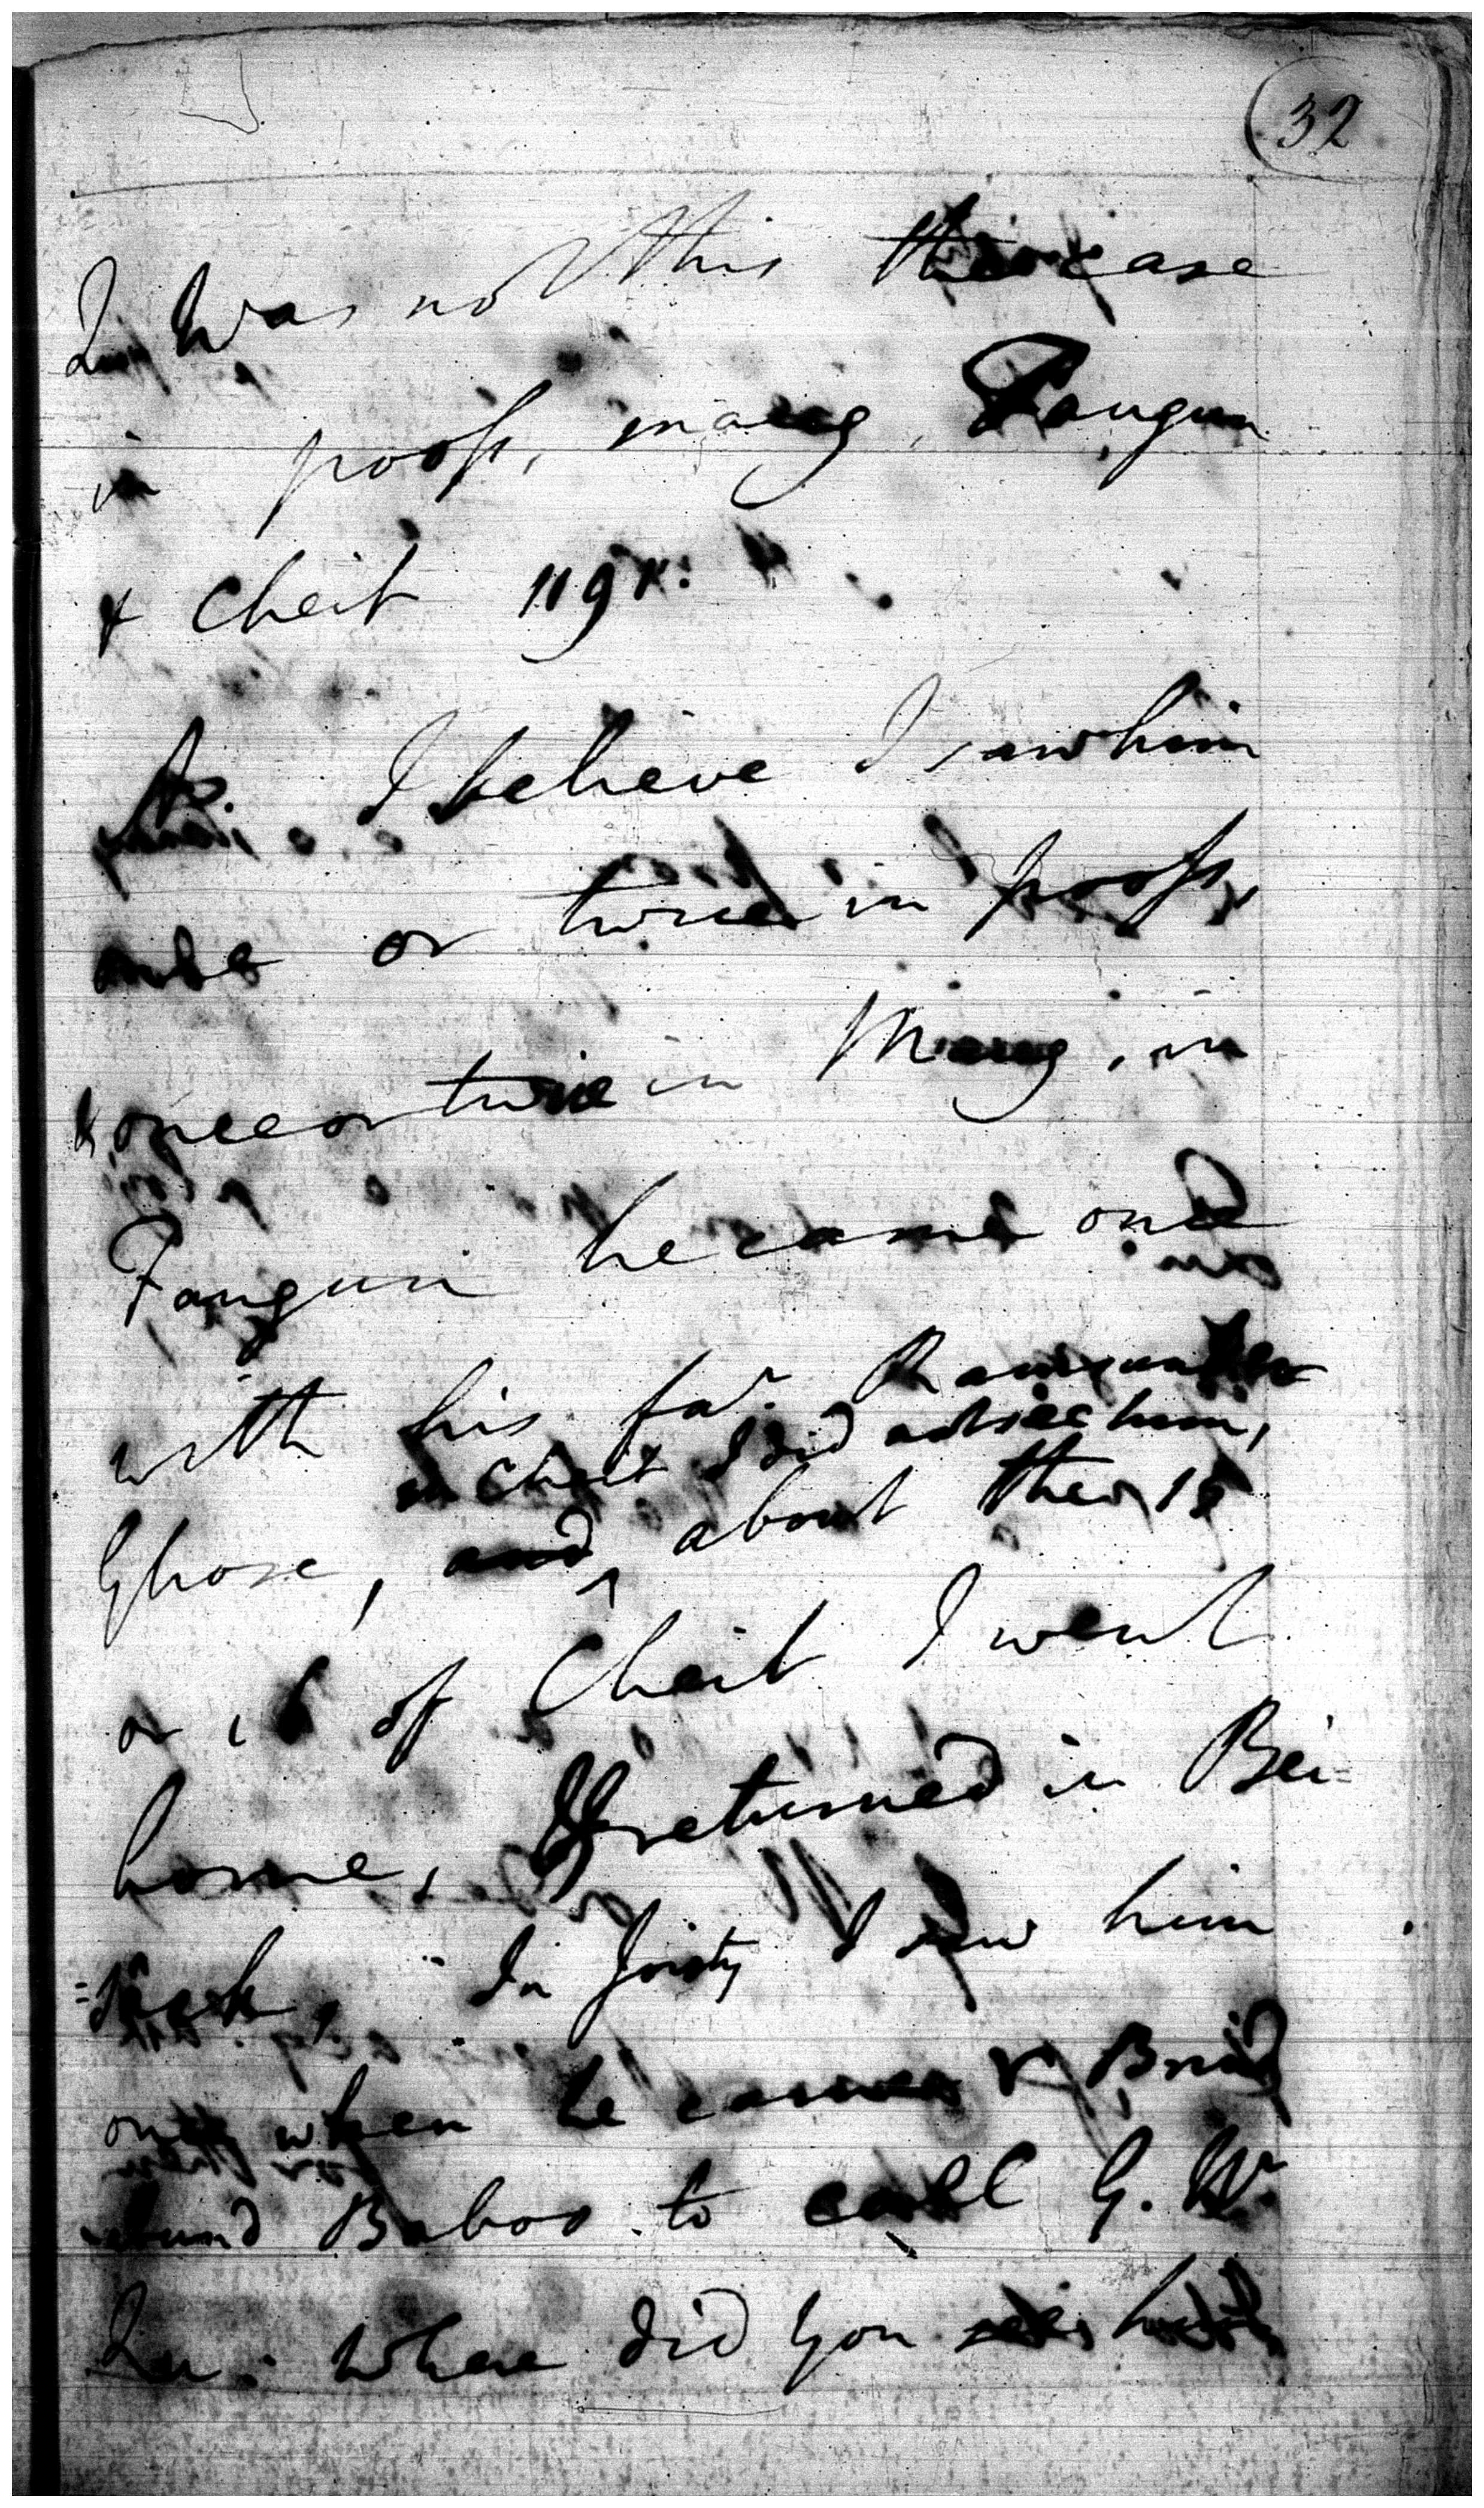 32
Qu Was not this the case
in pooss, maug, Faugun
& Cheit 1197:
As. I believe I saw him
once or twice in pooss,
& once or twice in Maug, in
Faugun he came once
with his far. Ramsunder
in Cheit I did not see him,
Ghose, and about the 15
or 16 of Cheit I went
home, I returned in Bei=
=sack, In Joisty I saw him
once when he came &
Baboo to call G. W.
Qu: Where did you see him